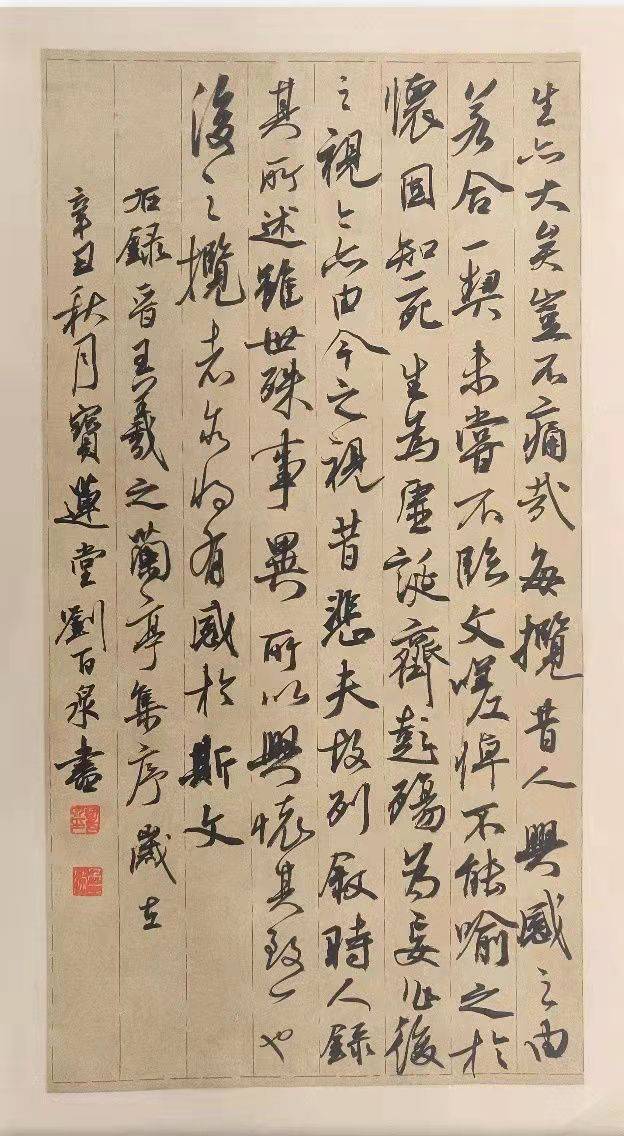 生亦大矣豈不痛哉每攬昔人興感之由
若合一契未嘗不臨文嗟悼不能喻之於
懷固知死生為虛誕齊彭殤為妄作後
之視今亦由今之視昔悲夫故列敘時人錄
其所述雖世殊事異所以興懷其致一也
後之攬者亦將有感於斯文
右錄晉王羲之蘭亭集序歲在
辛丑秋月寶蓮堂劉百泉書